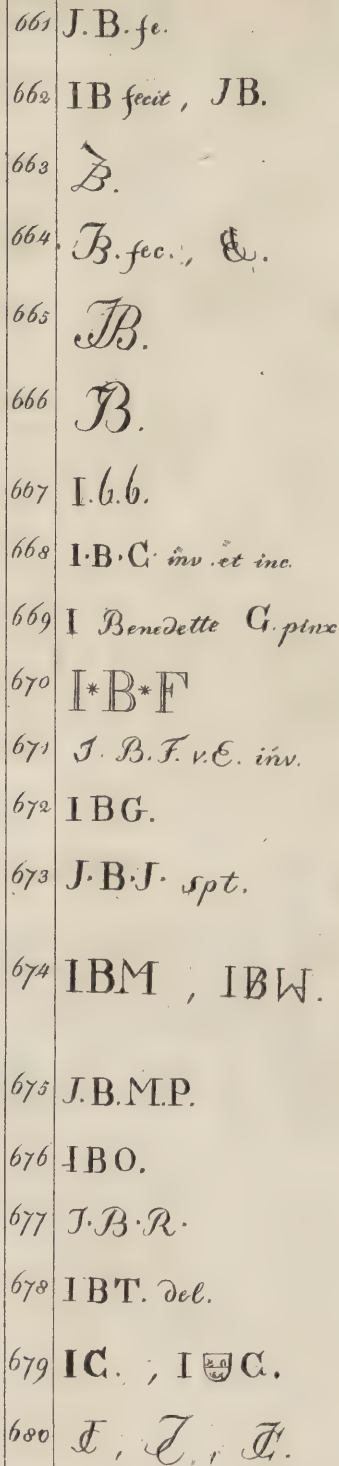 661 J.B.fe.
662 IB fecit, JB.
663 B.
664. JB.fec.,
665 JB.
666 JB.
667 I.b.b.
668 I·B·C· inv. et inc.
669 I Benedette G. pinx
670 I*B*F
671 J. B.F. v.E. inv.
672 IBG.
673 J·B·J· spt.
674 IBM , IBW.
675 J.B.M.P.
676 IBO.
677 J·B·R·
678 IBT. del.
679 IC. , I C.
680 JC, JC, JC.